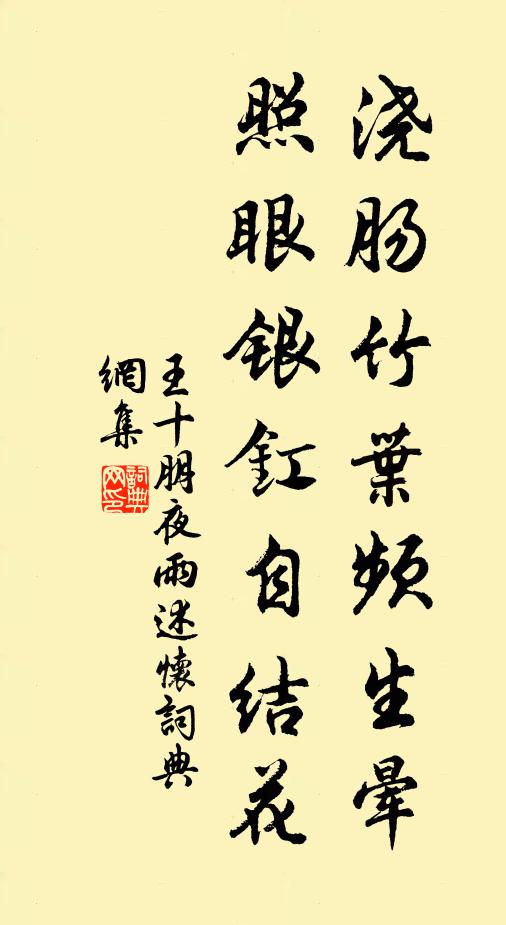 浇肠竹葉频生暈
照眼银釭自结花
王十朋夜雨述懷詞典
網集
詞典
网印